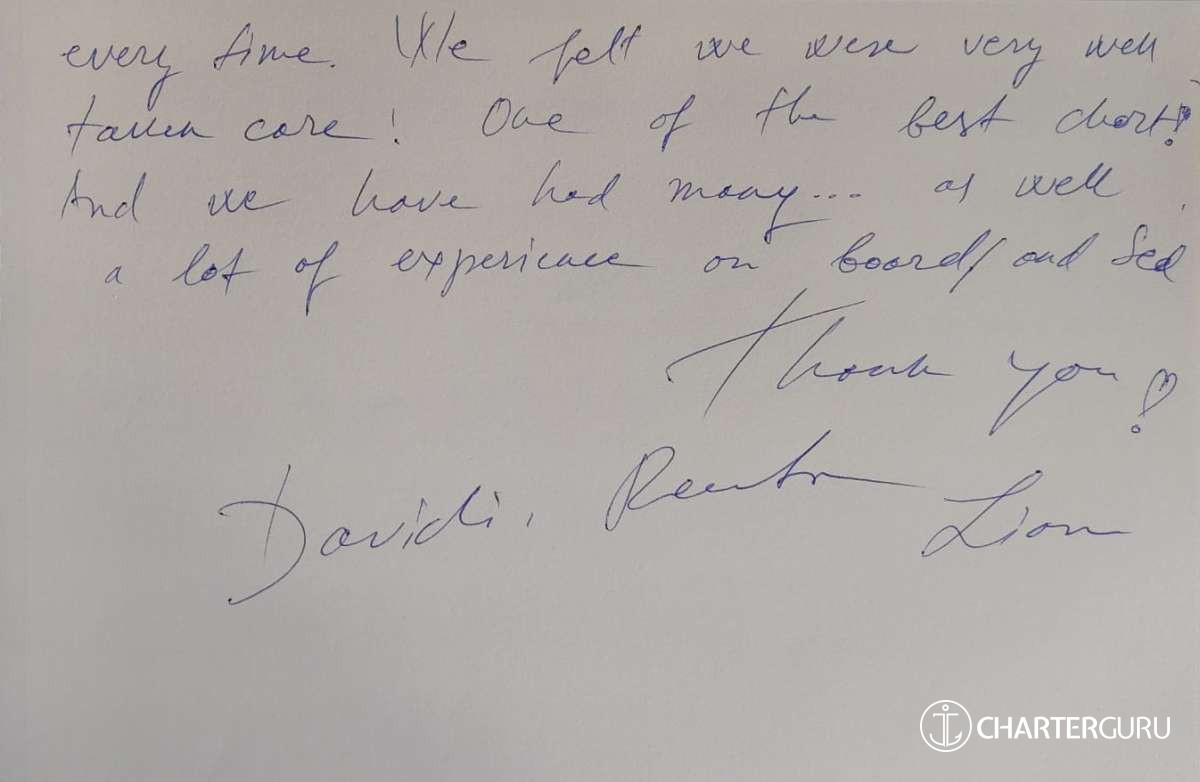 every time. We felt we were very well
taken care! One of the best chart!
And we have had many... as well
a lot of experience on board/and Sea
Thank you!
Davidi,
Lion
CHARTERGURU